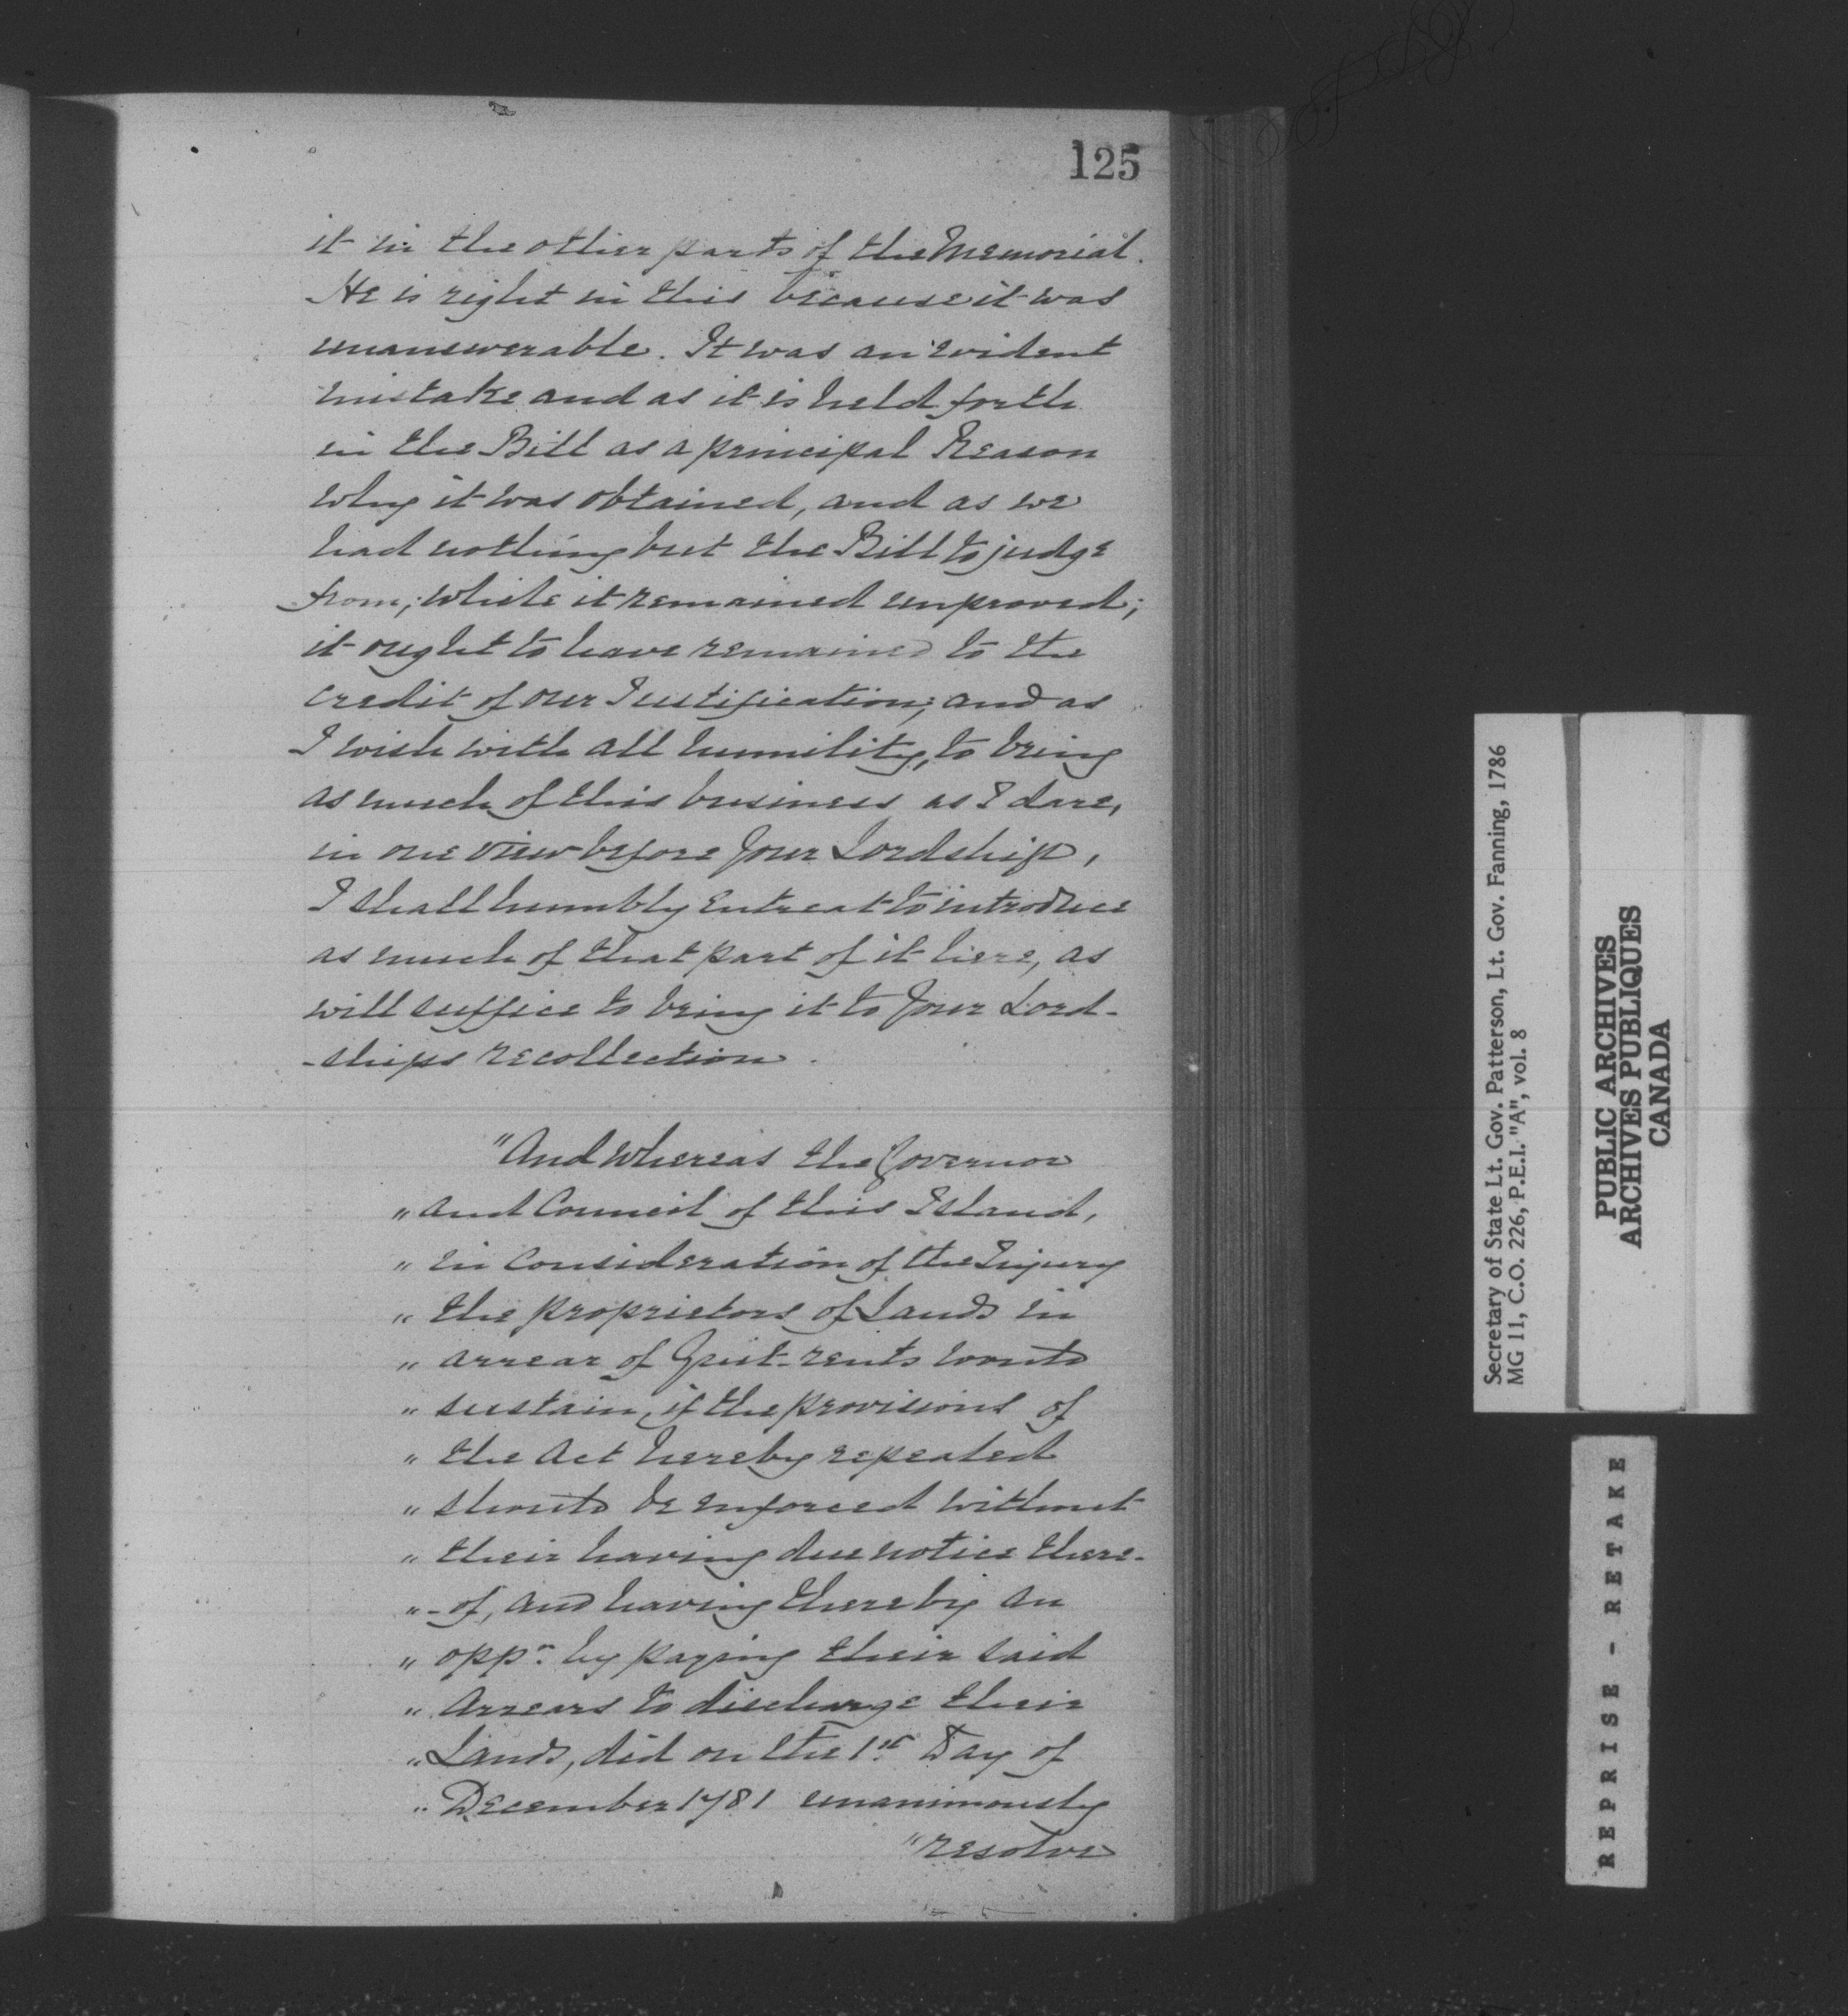 125
it in the other parts of the Memorial.
He is right in this because it was
unanswerable. It was an evident
mistake and as it is held forth
in the Bill as a principal Reason
why it was obtained, and as we
had nothing but the Bill to judge
from; while it remained unproved;
it ought to have remained to the
credit of our Justification; and as
I wish with all humility, to bring
as much of this business as I dare,
in one view before Your Lordship,
I shall humbly entreat to introduce
as much of that part of it here, as
will suffice to bring it to Your Lord-
-ships recollection.
"And Whereas the Governor
" and Council of this Island,
" in Consideration of the Injury
" the proprietors of Lands in
" arrear of Quit-rents would
" sustain, if the provisions of
" the Act hereby repealed
" should be enforced without
" their having due notice there-
" -of, and having thereby an
" oppn. by paying their said
" Arrears to discharge their
" Lands, did on the 1st Day of
" December 1781 unanimously
"resolve
Secretary of State Lt. Gov. Patterson, Lt. Gov. Fanning, 1786
MG 11, C.O. 226, P.E.I. "A", vol. 8
PUBLIC ARCHIVES
ARCHIVES PUBLIQUES
CANADA
REPRISE - RETAKE